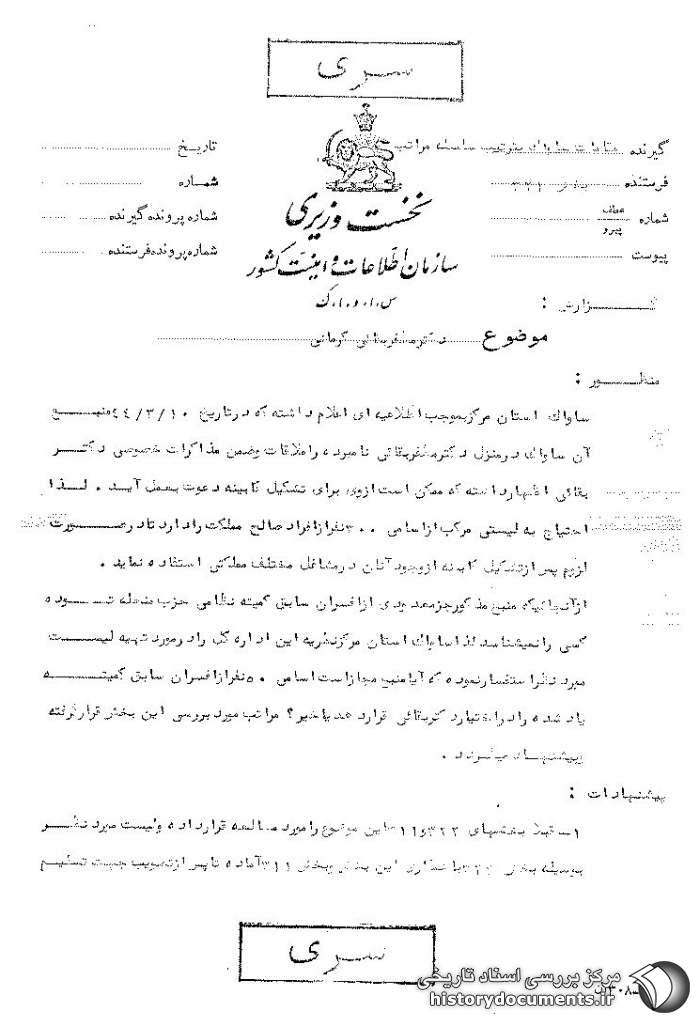 سری
گیرنده مقامات ساواک بترتیب سلسله مراتب
تاریخ
فرستنده بخش
شماره
شماره عطف پیرو
شماره پرونده گیرنده
پیوست
شماره پرونده فرستنده
نخست وزیری
سازمان اطلاعات و امنیت کشور
س.ا.و.ا.ک
گزارش :
موضوع دکتر مظفر بقائی کرمانی
منظور :
ساواک استان مرکز بموجب اطلاعیه ای اعلام داشته که در تاریخ ۴۴/۳/۱۰ منبع
آن ساواک در منزل دکتر مظفر بقائی نامبرده را ملاقات و ضمن مذاکرات خصوصی دکتر
بقائی اظهار داشته که ممکن است از وی برای تشکیل کابینه دعوت بعمل آید . لذا
احتیاج به لیستی مرکب از اسامی ۳۰۰ نفر از افراد صالح مملکت را دارد تا در صورت
لزوم پس از تشکیل کابینه از وجود آنان در مشاغل مختلف مملکتی استفاده نماید .
از آنجائیکه منبع مذکور جز معدودی از افسران سابق کمیته نظامی حزب منحله توده
کسی را نمیشناسد لذا ساواک استان مرکز نظریه این اداره کل را در مورد تهیه لیست
مورد استفسار نموده که آیا منبع مجاز است اسامی ۵۰ نفر از افسران سابق کمیته
یاد شده را در اختیار دکتر بقائی قرار دهد یا خیر؟ مراتب مورد بررسی این بخش قرار گرفته
و پیشنهاد میگردد .
پیشنهادات :
۱- قبلا بخشهای ۳۲۲ و ۳۱۱ این موضوع را مورد مطالعه قرار داده و لیست مورد نظر
بوسیله بخش با همکاری این بخش و بخش ۳۱۱ آماده تا پس از تصویب جهت تسلیم
سری
مرکز بررسی اسناد تاریخی
historydocuments.ir